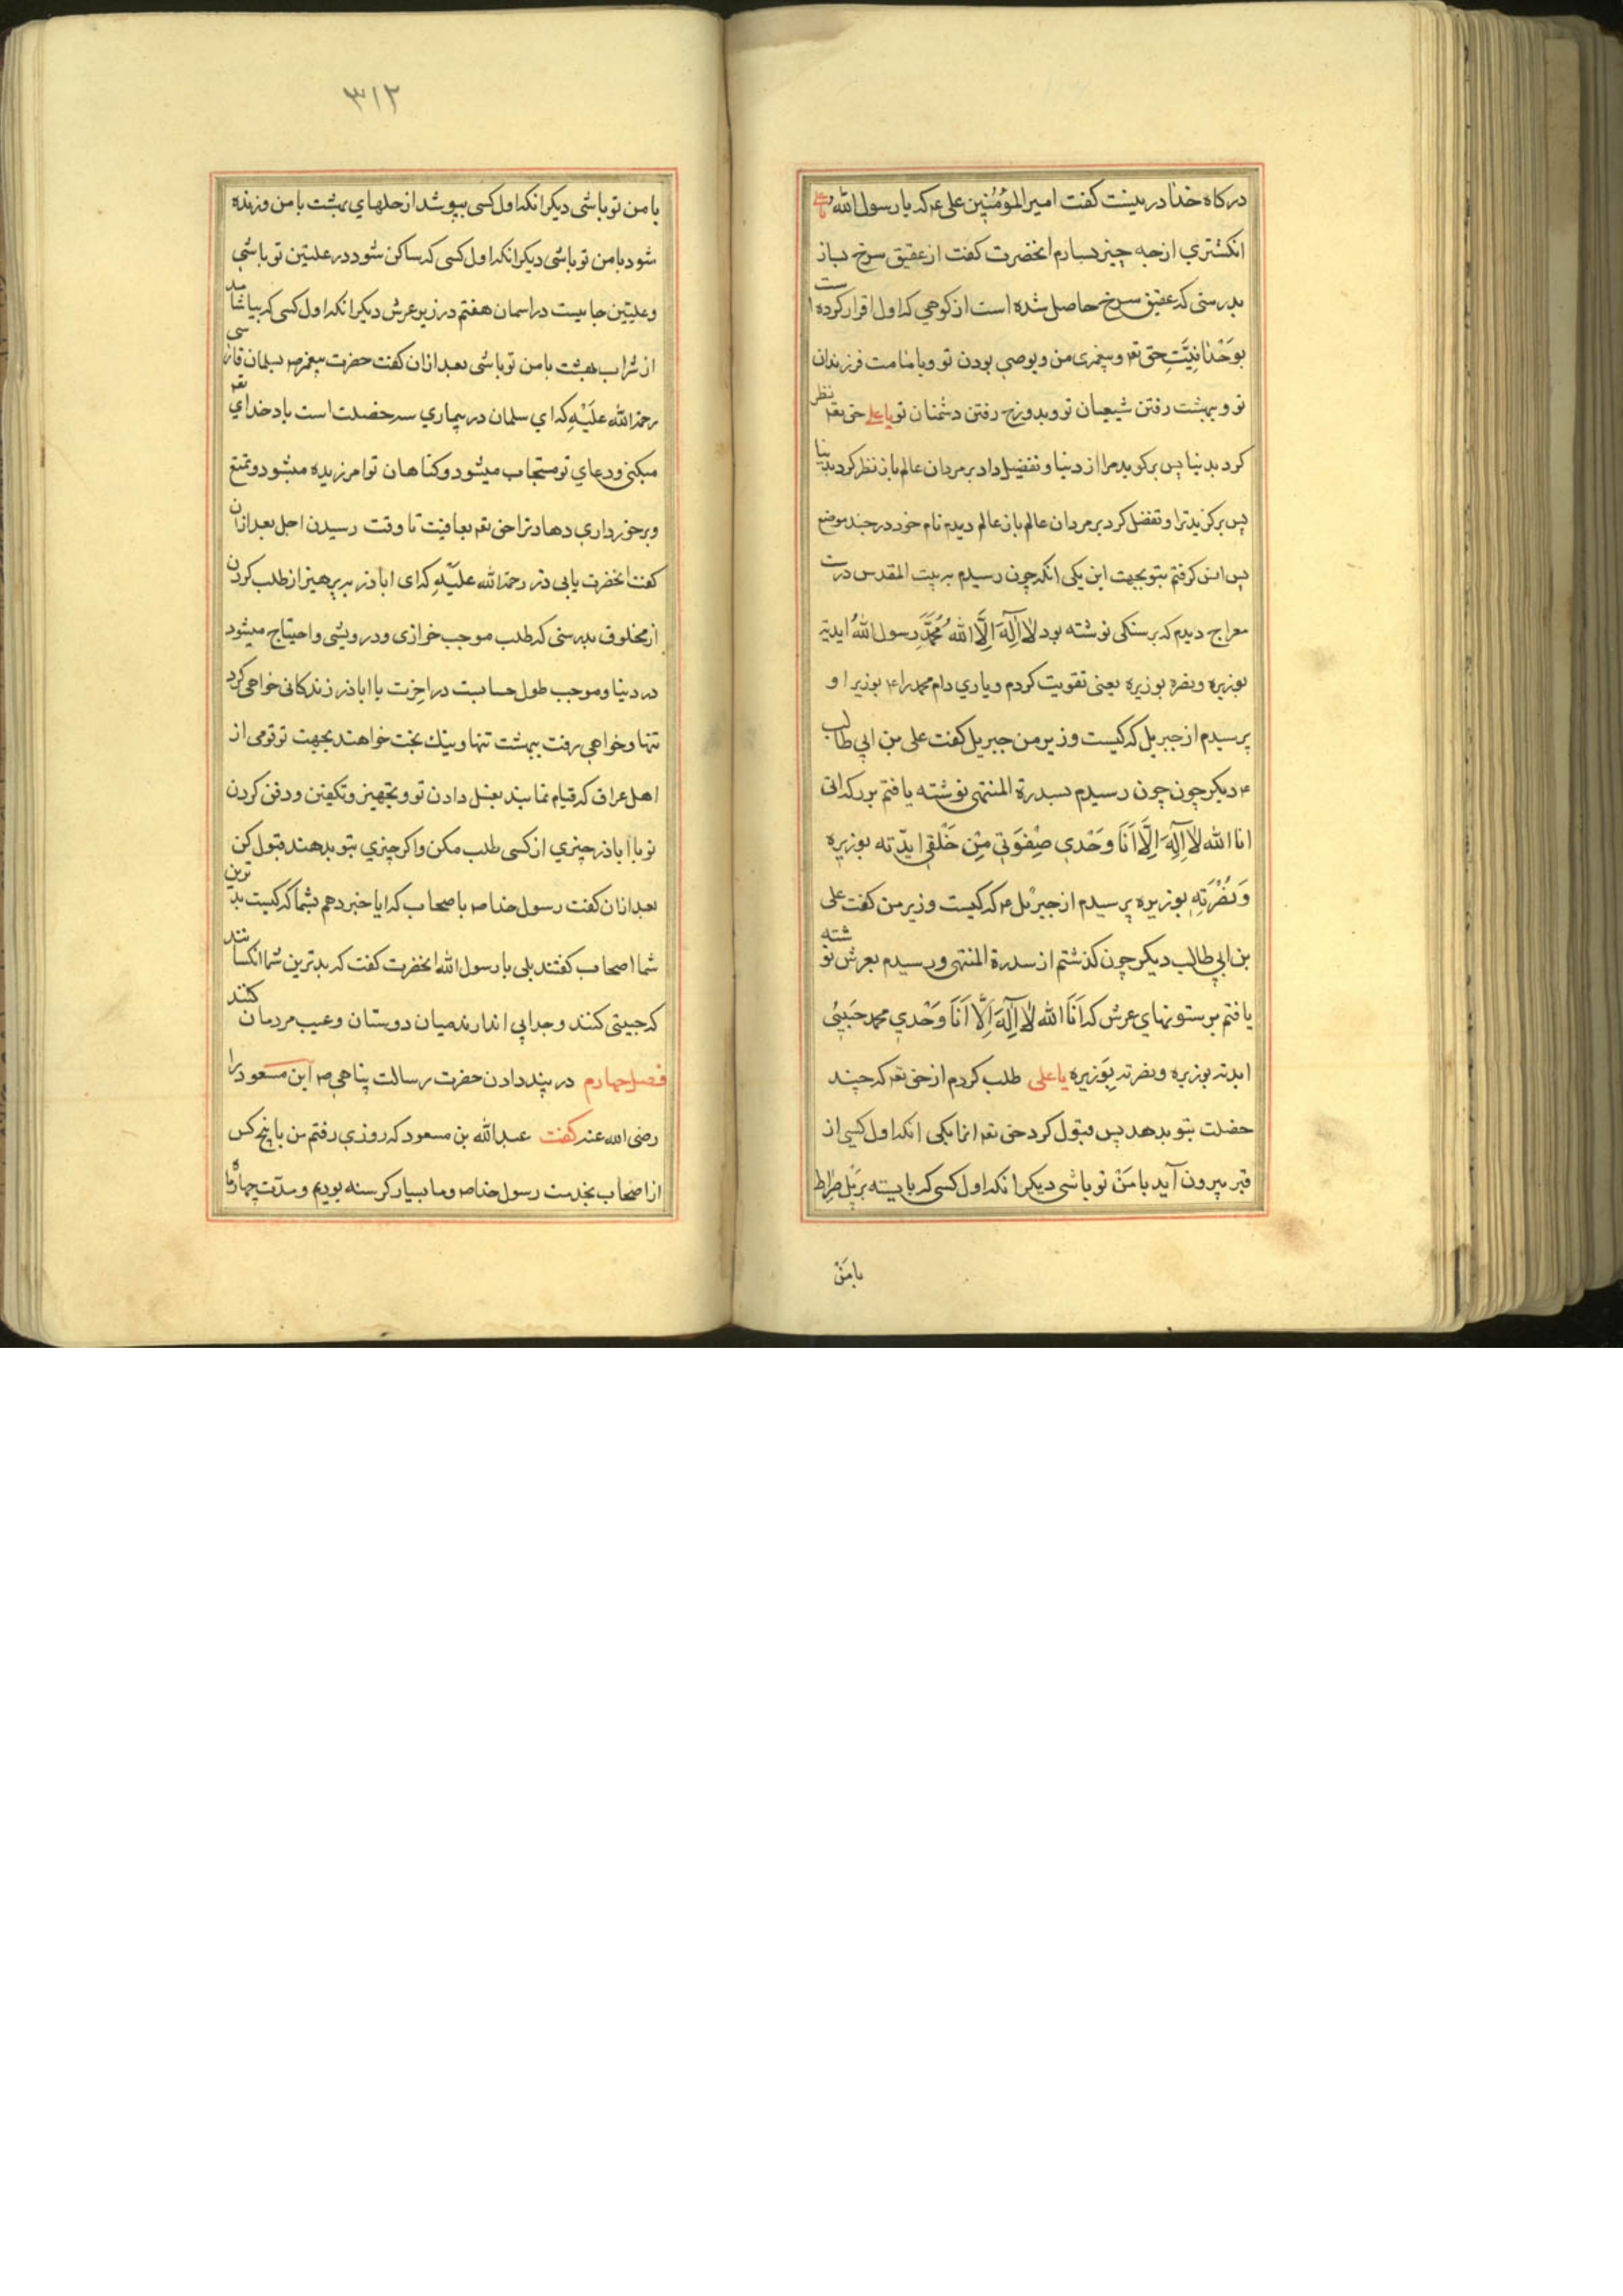 درکاه خدا در بینست کفت امیر المؤمنین علی ع که یا رسول الله و
انکشتری از چه چیز بسازم انحضرت کفت از عقیق سرخ بساز
بدرستی که عقیق سرخ حاصل شده است از کوهی که اول اقرار کرده است
بوَحْدانِیَّتِ حق تع و پیغمبری من و بوصی بودن تو و بامامت فرزندان
تو و ببهشت رفتن شیعیان تو و بدوزخ رفتن دشمنان تو یا علی حق تع نظر
کرد بدنیا پس برکزید مرا از دنیا و تفضیل داد بر مردان عالم باز نظر کرد بدنیا
پس برکزید ترا و تفضل کرد بر مردان عالم باز عالم دیدم نام خود در چند موضع
پس انس کرفتم بتو بجهت این یکی انکه چون رسیدم به بیت المقدس در
معراج دیدم که بر سنکی نوشته بود لا اله الا الله محمد رسول الله ایدته
بوزیره و نصره بوزیره یعنی تقویت کردم و یاری دام محمد را ع بوزیر او
پرسیدم از جبریل که کیست وزیر من جبریل کفت علی بن ابی طالب
ع دیکر چون چون رسیدم بسدرة المنتهی نوشته یافتم بر که انی
انا الله لا اله الا انا وَحْدی صِفْوَتی مِنْ خَلْقی ایدّته بوزیره
وَنصُرْتِه بوزیره پرسیدم از جبرئل ع که کیست وزیر من کفت علی
بن ابی طالب دیکر چون کذشتم از سدرة المنتهی و رسیدم بعرش نوشته
یافتم بر ستونهای عرش که اَنَا الله لا اله الا اَنَا وَحْدی محمد حَبیبی
ایدته بوزیره و نصرته بوَزیره یا علی طلب کردم از حق تع که چند
خصلت بتو بدهد پس قبول کرد حق تع انها یکی انکه اول کسی از
قبر بیرون آید با مَنْ تو باشی دیکر انکه اول کسی که بایسته بر پل صراط
با مَنْ
۳۱۲
با من تو باشی دیکر انکه اول کسی بپوشد از حلهای بهشت با من و زنده
شود با من تو باشی دیکر انکه اول کسی که ساکن شود در علیین تو باشی
و علیین جاییست در اسمان هفتم در زیر عرش دیکر انکه اول کسی که بیاشامد
از شراب بهشت با من تو باشی بعد ازان کفت حضرت پیغمبر ص بسلمان فارسی
رحمة الله علَیْهِ که ای سلمان در بیماری سه خصلت است یاد خدای تع
میکنی و دعای تو مستجاب میشود و کناهان تو امرزیده میشود و تمتع
و برخورداری دهاد ترا حق تع بعافیت تا وقت رسیدن اجل بعد ازان
کفت انحضرت بابی ذر رحمة الله علیْهِ که ای اباذر بپرهیز از طلب کردن
از مخلوق بدرستی که طلب موجب خوازی و درویشی و احتیاج میشود
در دنیا و موجب طول حسابست در اخرت یا اباذر زندکانی خواهی کرد
تنها و خواهی رفت ببهشت تنها و نیک بخت خواهند بجهت تو قومی از
اهل عراق که قیام نمایند بغسل دادن تو و تجهیز و تکفین و دفن کردن
تو یا اباذر چیزی از کسی طلب مکن و اکر چیزی بتو بدهند قبول کن
بعد ازان کفت رسول خدا ص باصحاب که ایا خبر دهم بشما که کیست بدترین
شما اصحاب کفتند بلی یا رسول الله انحضرت کفت که بدترین شما انکسانند
که جیتی کنند و جدایی اندازند میان دوستان و عیب مردمان کنند
فصل چهارم در پند دادن حضرت رسالت پناهی ص ابن مسعود را
رضی الله عنه کفت عبدالله بن مسعود که روزی رفتم من با پنج کس
از اصحاب بخدمت رسول خدا ص و ما بسیار کرسنه بودیم و مدّت چهار ماه